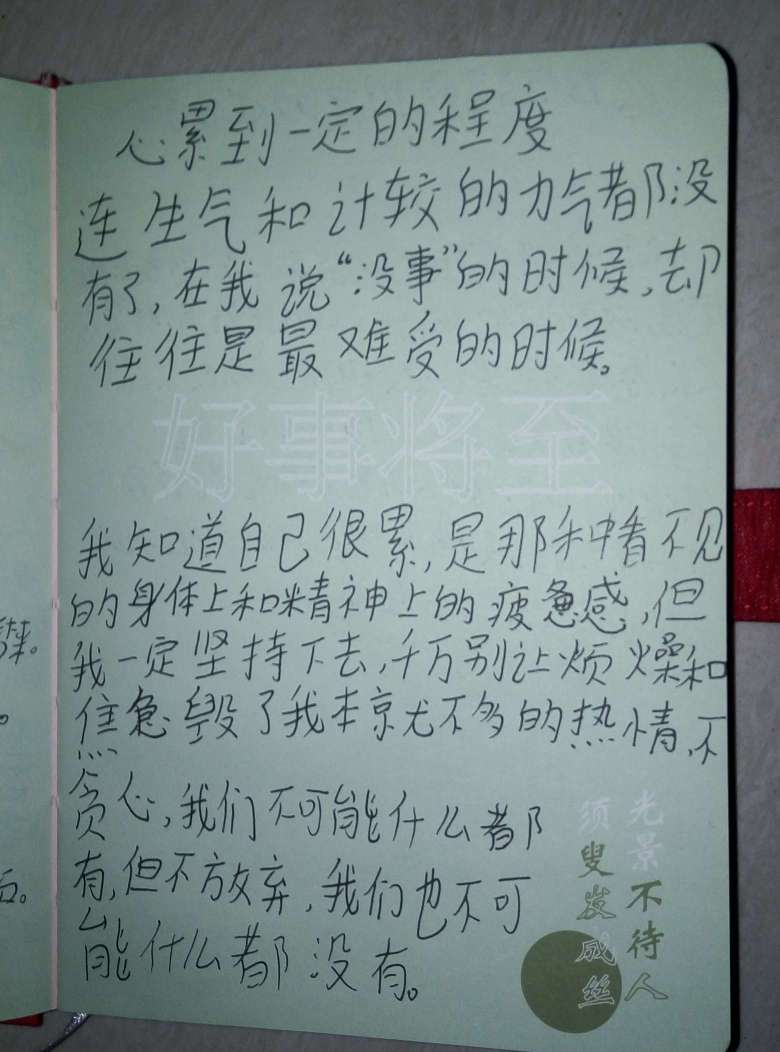 心累到一定的程度
连生气和计较的力气都没
有了,在我说“没事”的时候,却
往往是最难受的时候。
好事将至
我知道自己很累,是那种看不见
的身体上和精神上的疲惫感,但
我一定坚持下去,千万别让烦燥和
焦急毁了我本京尤不多的热情,不
贪心,我们不可能什么都
有,但不放弃,我们也不可
能什么都没有。
光景不待人
须叟发成丝